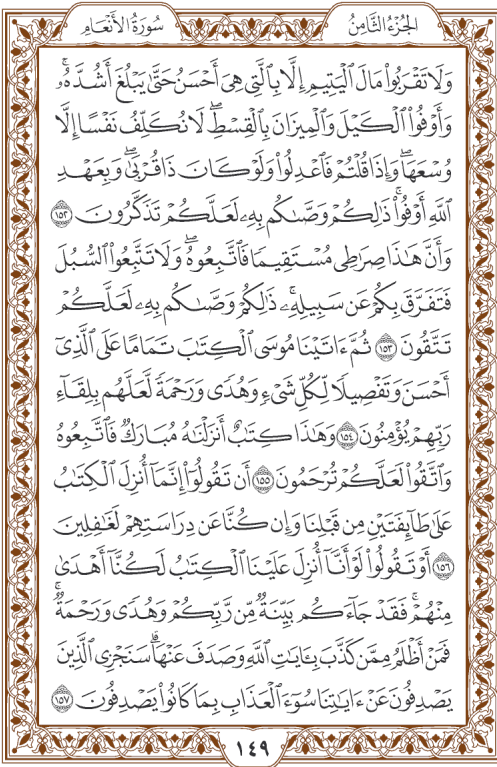 سُورَةُ الأَنْعَامِ الجُزْءُ الثَّامِنُ
وَلَا تَقْرَبُوا۟ مَالَ ٱلْيَتِيمِ إِلَّا بِٱلَّتِى هِىَ أَحْسَنُ حَتَّىٰ يَبْلُغَ أَشُدَّهُۥ ۚ
وَأَوْفُوا۟ ٱلْكَيْلَ وَٱلْمِيزَانَ بِٱلْقِسْطِ ۖ لَا نُكَلِّفُ نَفْسًا إِلَّا
وُسْعَهَا ۖ وَإِذَا قُلْتُمْ فَٱعْدِلُوا۟ وَلَوْ كَانَ ذَا قُرْبَىٰ ۖ وَبِعَهْدِ
ٱللَّهِ أَوْفُوا۟ ۚ ذَٰلِكُمْ وَصَّىٰكُم بِهِۦ لَعَلَّكُمْ تَذَكَّرُونَ ١٥٢
وَأَنَّ هَٰذَا صِرَٰطِى مُسْتَقِيمًا فَٱتَّبِعُوهُ ۖ وَلَا تَتَّبِعُوا۟ ٱلسُّبُلَ
فَتَفَرَّقَ بِكُمْ عَن سَبِيلِهِۦ ۚ ذَٰلِكُمْ وَصَّىٰكُم بِهِۦ لَعَلَّكُمْ
تَتَّقُونَ ١٥٣ ثُمَّ ءَاتَيْنَا مُوسَى ٱلْكِتَٰبَ تَمَامًا عَلَى ٱلَّذِىٓ
أَحْسَنَ وَتَفْصِيلًا لِّكُلِّ شَىْءٍ وَهُدًى وَرَحْمَةً لَّعَلَّهُم بِلِقَآءِ
رَبِّهِمْ يُؤْمِنُونَ ١٥٤ وَهَٰذَا كِتَٰبٌ أَنزَلْنَٰهُ مُبَارَكٌ فَٱتَّبِعُوهُ
وَٱتَّقُوا۟ لَعَلَّكُمْ تُرْحَمُونَ ١٥٥ أَن تَقُولُوٓا۟ إِنَّمَآ أُنزِلَ ٱلْكِتَٰبُ
عَلَىٰ طَآئِفَتَيْنِ مِن قَبْلِنَا وَإِن كُنَّا عَن دِرَاسَتِهِمْ لَغَٰفِلِينَ
١٥٦ أَوْ تَقُولُوا۟ لَوْ أَنَّآ أُنزِلَ عَلَيْنَا ٱلْكِتَٰبُ لَكُنَّآ أَهْدَىٰ
مِنْهُمْ ۚ فَقَدْ جَآءَكُم بَيِّنَةٌ مِّن رَّبِّكُمْ وَهُدًى وَرَحْمَةٌ ۚ
فَمَنْ أَظْلَمُ مِمَّن كَذَّبَ بِـَٔايَٰتِ ٱللَّهِ وَصَدَفَ عَنْهَا ۗ سَنَجْزِى ٱلَّذِينَ
يَصْدِفُونَ عَنْ ءَايَٰتِنَا سُوٓءَ ٱلْعَذَابِ بِمَا كَانُوا۟ يَصْدِفُونَ ١٥٧
١٤٩